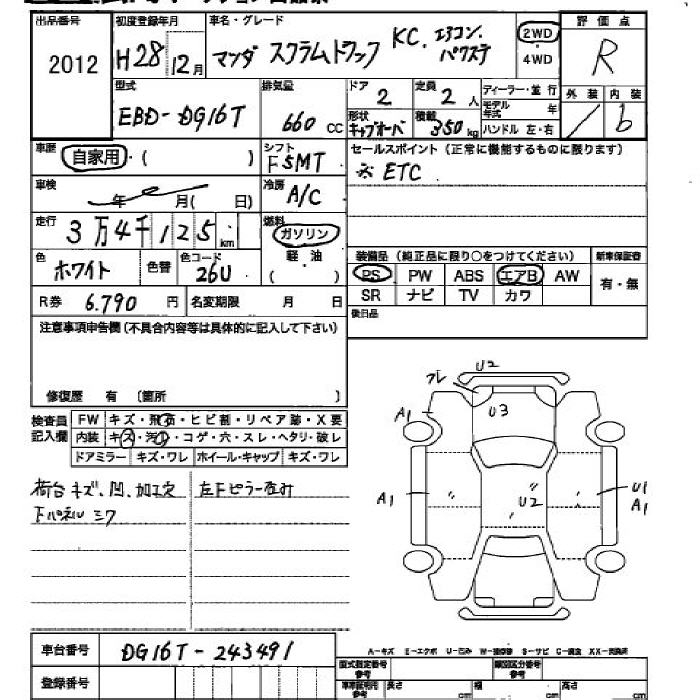 出品番号 初度登録年月 車名・グレード 評価点
2012 H28年 12月 マツダ スクラムトラック KC.エアコン. パワステ 2WD・4WD R
型式 排気量 ドア 定員 ディーラー・並行 外装 内装
EBD-DG16T 660 CC 2 2人 モデル年式 年 / b
形状 キャブオーバ 積載 350kg ハンドル 左・右
車歴 自家用・( ) シフト F5MT セールスポイント(正常に機能するものに限ります)
ETC
車検 年 月( 日) 冷房 A/C
走行 3万4千125km 燃料 ガソリン
軽・油
( )
色 ホワイト 色替 色コード 26U
装備品(純正品に限り○をつけてください) 新車保証書
PS PW ABS エアB AW 有・無
SR ナビ TV カワ
R券 6.790円 名変期限 月 日
後日品
注意事項申告欄(不具合内容等は具体的に記入して下さい)
修復歴 有 〔箇所 〕
検査員記入欄 FW キズ・飛石・ヒビ割・リペア跡・X要
内装 キズ・汚れ・コゲ・穴・スレ・ヘタリ・破レ
ドアミラー キズ・ワレ ホイール・キャップ キズ・ワレ
荷台キズ、凹、加工穴 左Fピラー歪み
Fパネルシワ
U2
フレ
A1 U3
A1 〃 〃 U2 〃 U1
A1
A-キズ E-エクボ U-凹み W-補修跡 S-サビ C-腐食 XX-交換済
車台番号 DG16T-243491
型式指定番号 参考 類別区分番号 参考
登録番号 車車証明用 参考 長さ cm 幅 cm 高さ cm